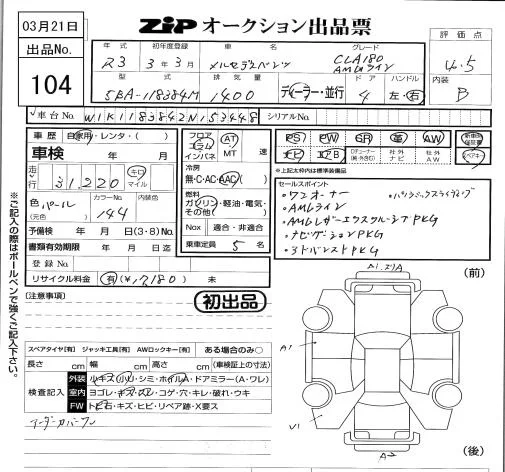 03月21日
ZIP オークション出品票
出品No.
104
年式 初年度登録 車名 グレード
R3 3年3月 メルセデスベンツ CLA180 AMGライン
型式 排気量 ドア ハンドル
5BA-118384M 1400 ディーラー・並行 4 左・右
評価点
4.5
内装
B
車台No. W1K1183842N153448 シリアルNo.
車歴 自家用・レンタ( )
車検 年 月
走行 31,220 キロ マイル
色 パール (元色) カラーNo. 144 内装色
予備検 年 月(3・8)No.
書類有効期限 年 月 日迄
登録No.
リサイクル料金 有(¥12180) 未
フロア コラム インパネ AT MT 速
冷房 無・C・AC・AAC( )
燃料 ガソリン・軽油・電気・その他( )
Nox 適合・非適合
乗車定員 5 名
PS PW SR 革 AW 新車時保証書
ナビ エアB Dチューナー(純・外含む) 社外ナビ 社外AW
※上記太枠内は標準装備品
セールスポイント
・ワンオーナー
・AMGライン
・AMGレザーエクスクルーシブPKG
・ナビゲーションPKG
・アドバンストPKG
(注意事項)
初出品
スペアタイヤ【有】 ジャッキ工具【有】 AWロックキー【有】 ある場合のみ○
長さ cm 幅 cm 高さ cm (車検証上の寸法)
検査記入
外装 小キズ・小凹・シミ・ホイルA・ドアミラー(A・ワレ)
室内 ヨゴレ・キズ・スレ・コゲ・穴・キレ・破れ・ウキ
FW トビ石・キズ・ヒビ・リペア跡・X要ス
アンダーカバーワレ
※ご記入の際はボールペンで強くご記入下さい。
(前)
A1
V1
A
(後)